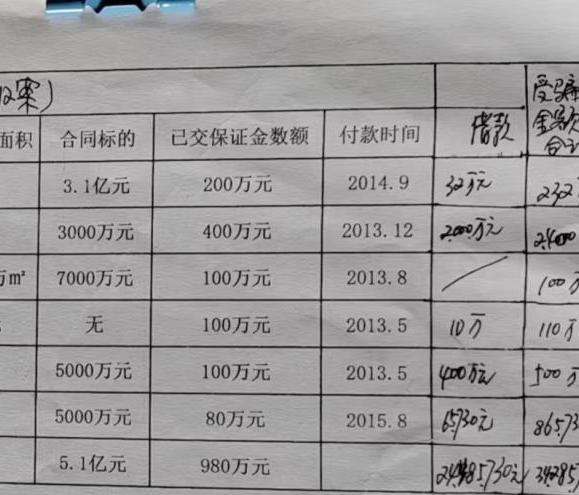 案)
面积 合同标的 已交保证金数额 付款时间 借款 受骗金额合计
3.1亿元 200万元 2014.9 32万元 232
3000万元 400万元 2013.12 2000万元 2400
万m² 7000万元 100万元 2013.8 ／ 100万
无 100万元 2013.5 10万 110万
5000万元 100万元 2013.5 400万元 500万
5000万元 80万元 2015.8 65730元 86573
5.1亿元 980万元